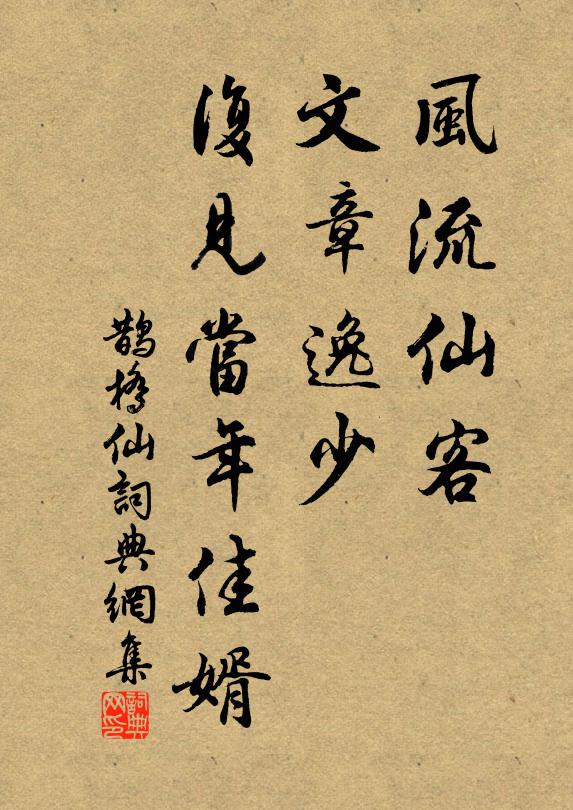 風流仙客
文章逸少
復見當年佳婿
鵲橋仙詞典網集
詞典網印